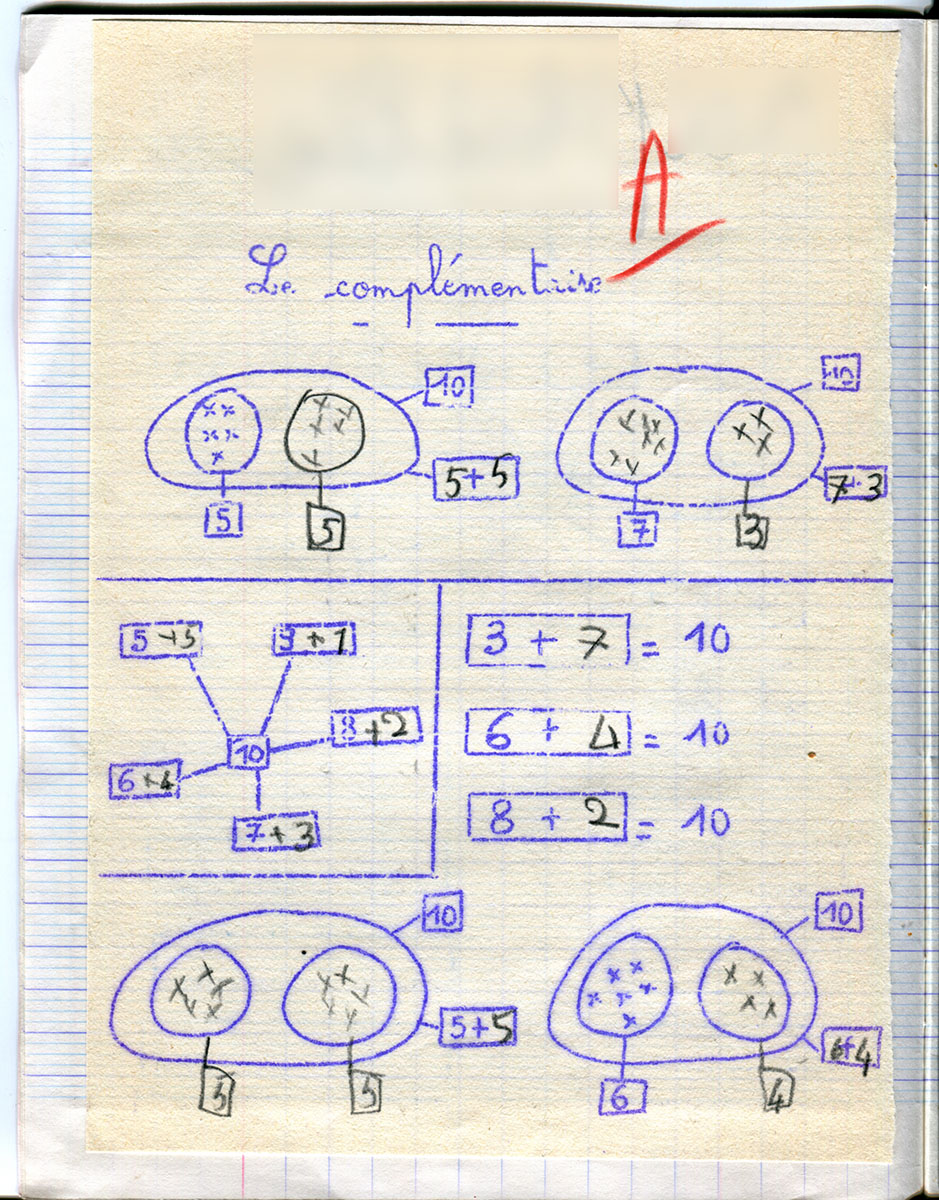 A
Le complémentaire
10
5+5
5
5
7+3
7
3
5+5
3+7
8+2
10
6+4
7+3
3 + 7 = 10
6 + 4 = 10
8 + 2 = 10
10
5+5
5
5
10
6+4
6
4